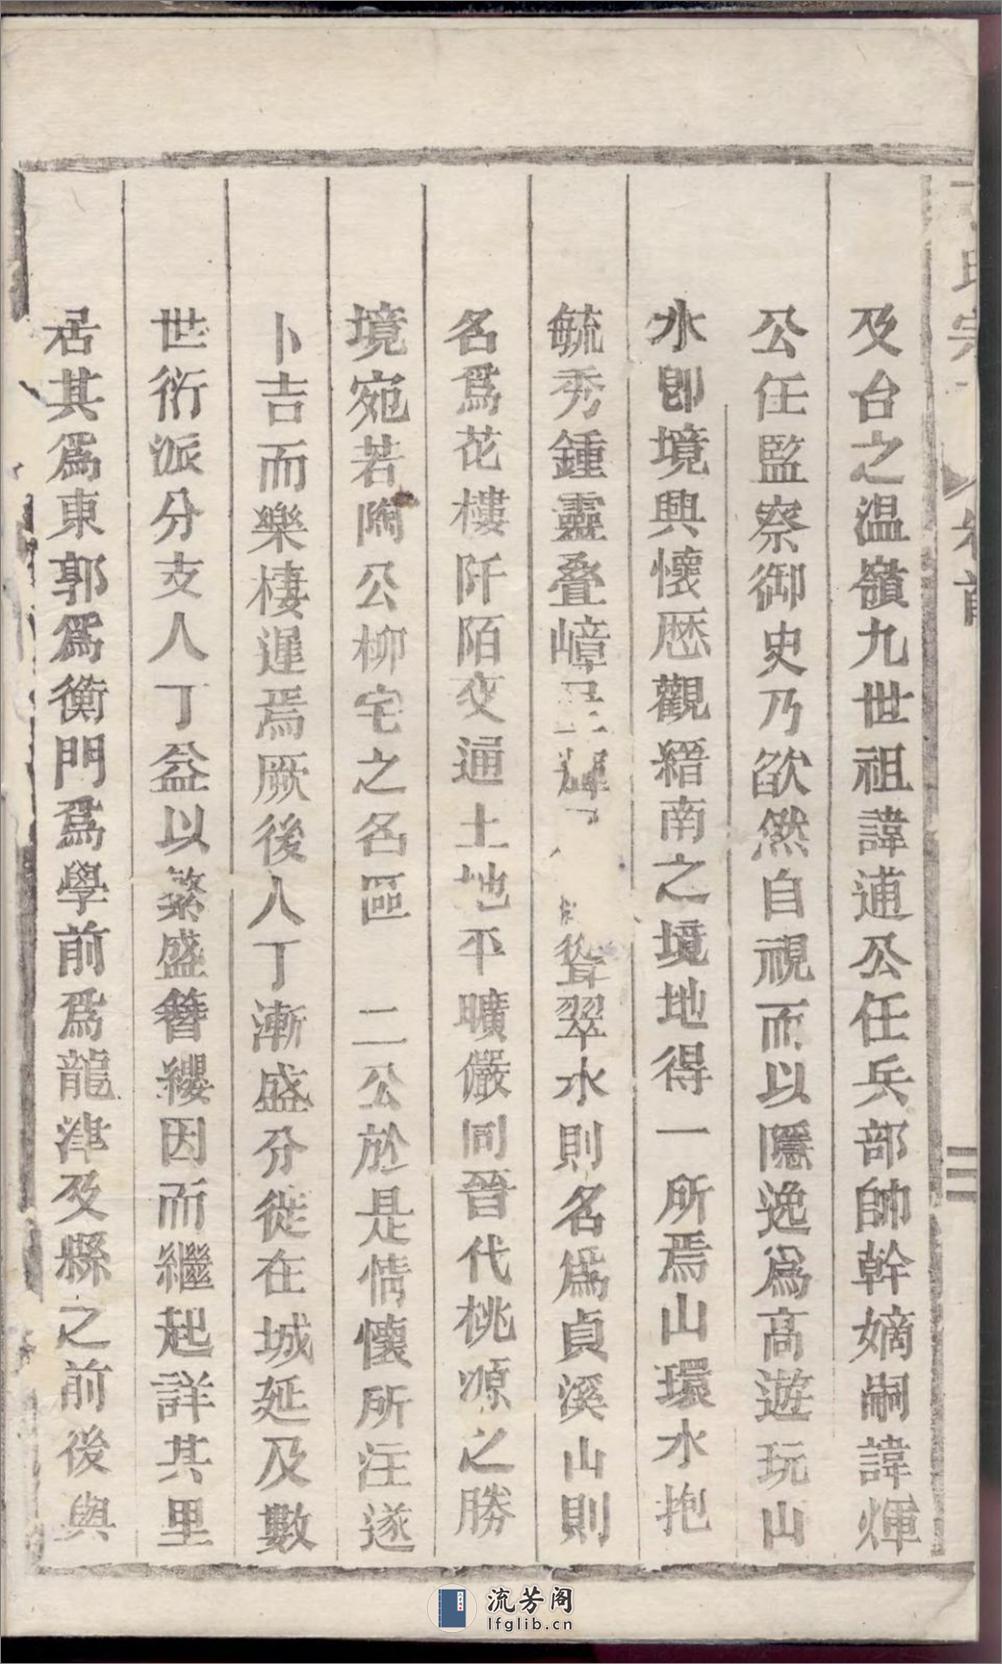 氏宗
卷首
二
及台之温嶺九世祖諱逋公任兵部帥幹嫡嗣諱煇
公任監察御史乃欿然自視而以隱逸爲高遊玩山
水卽境興懷厯觀縉南之境地得一所焉山環水抱
毓秀鍾靈叠嶂聳翠水則名爲貞溪山則
名爲花樓阡陌交通土地平曠儼同晉代桃源之勝
境宛若陶公柳宅之名區 二公於是情懷所注遂
卜吉而樂棲遲焉厥後人丁漸盛分徙在城延及數
世衍派分支人丁益以繁盛簪纓因而繼起詳其里
居其爲東郭爲衡門爲學前爲龍津及縣之前後與
流芳阁
lfglib.cn